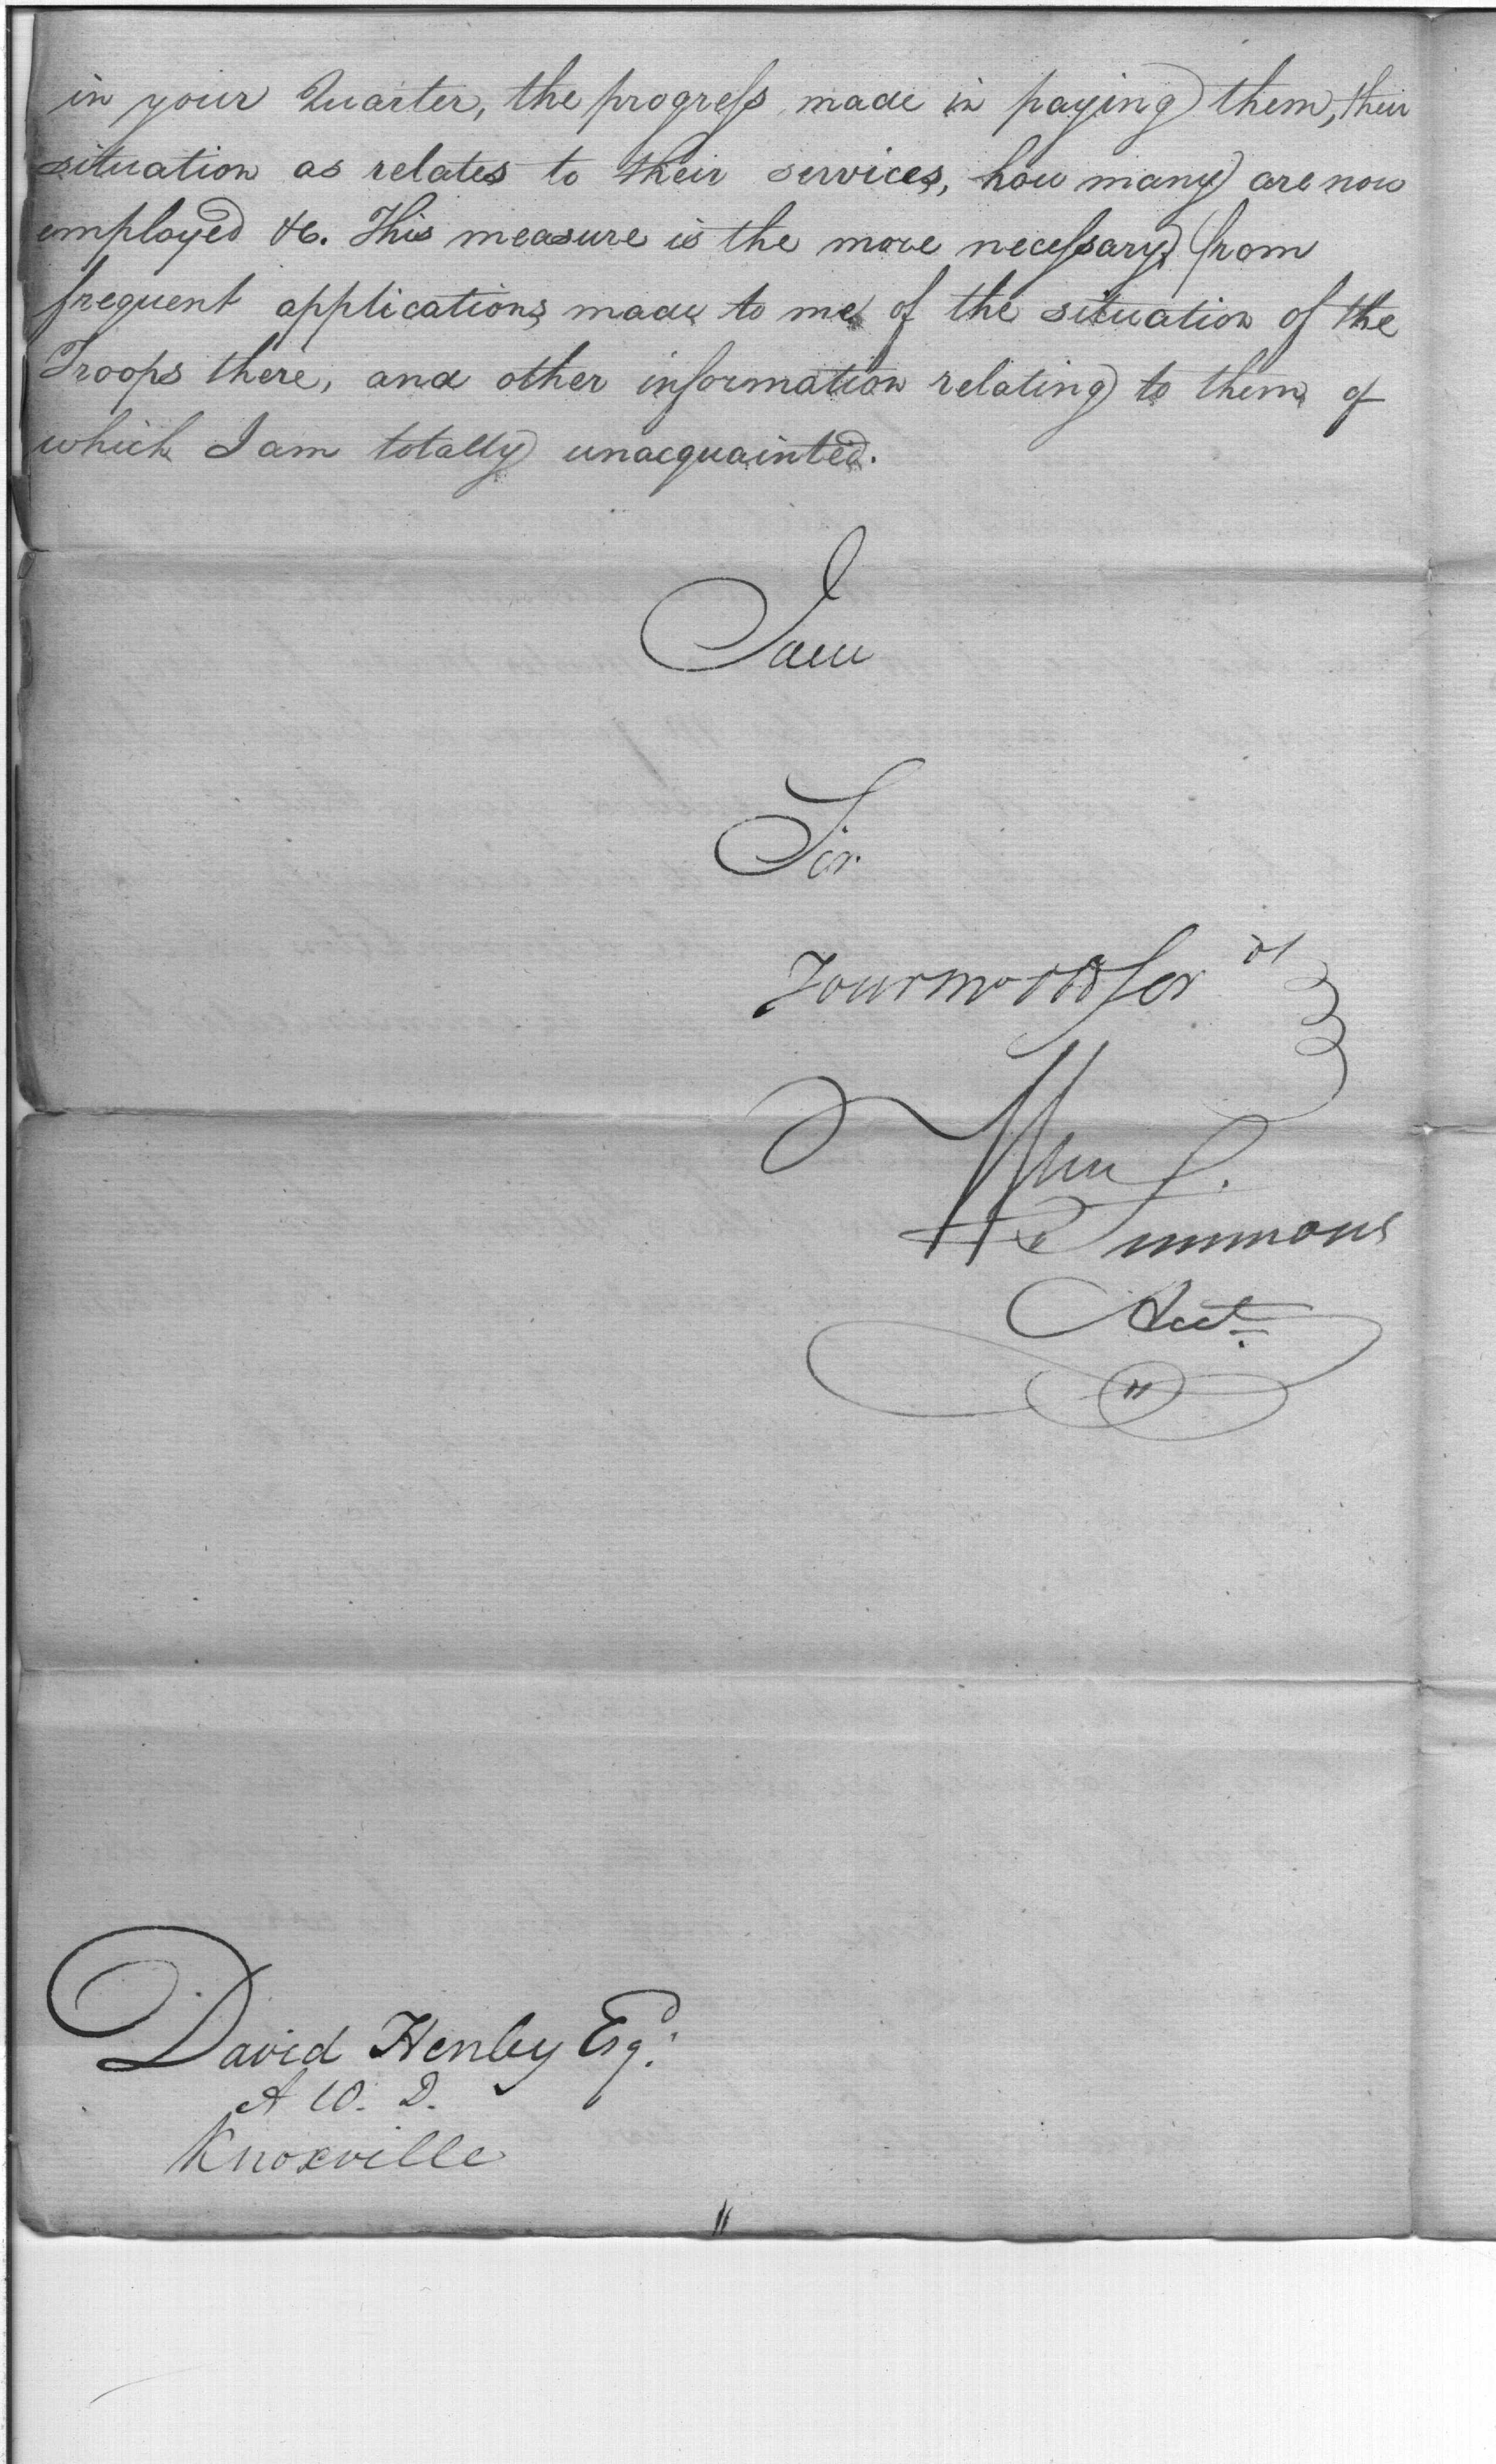 in your Quarter, the progress made in paying them, their
situation as relates to their services, how many are now
employed &c. This measure is the more necessary, from
frequent applications made to me of the situation of the
Troops there, and other information relating to them of
which I am totally unacquainted.
I am
Sir
Your mo obd Servt
Wm Simmons
Acct.
David Henley Esqr.
A W. D.
Knoxville